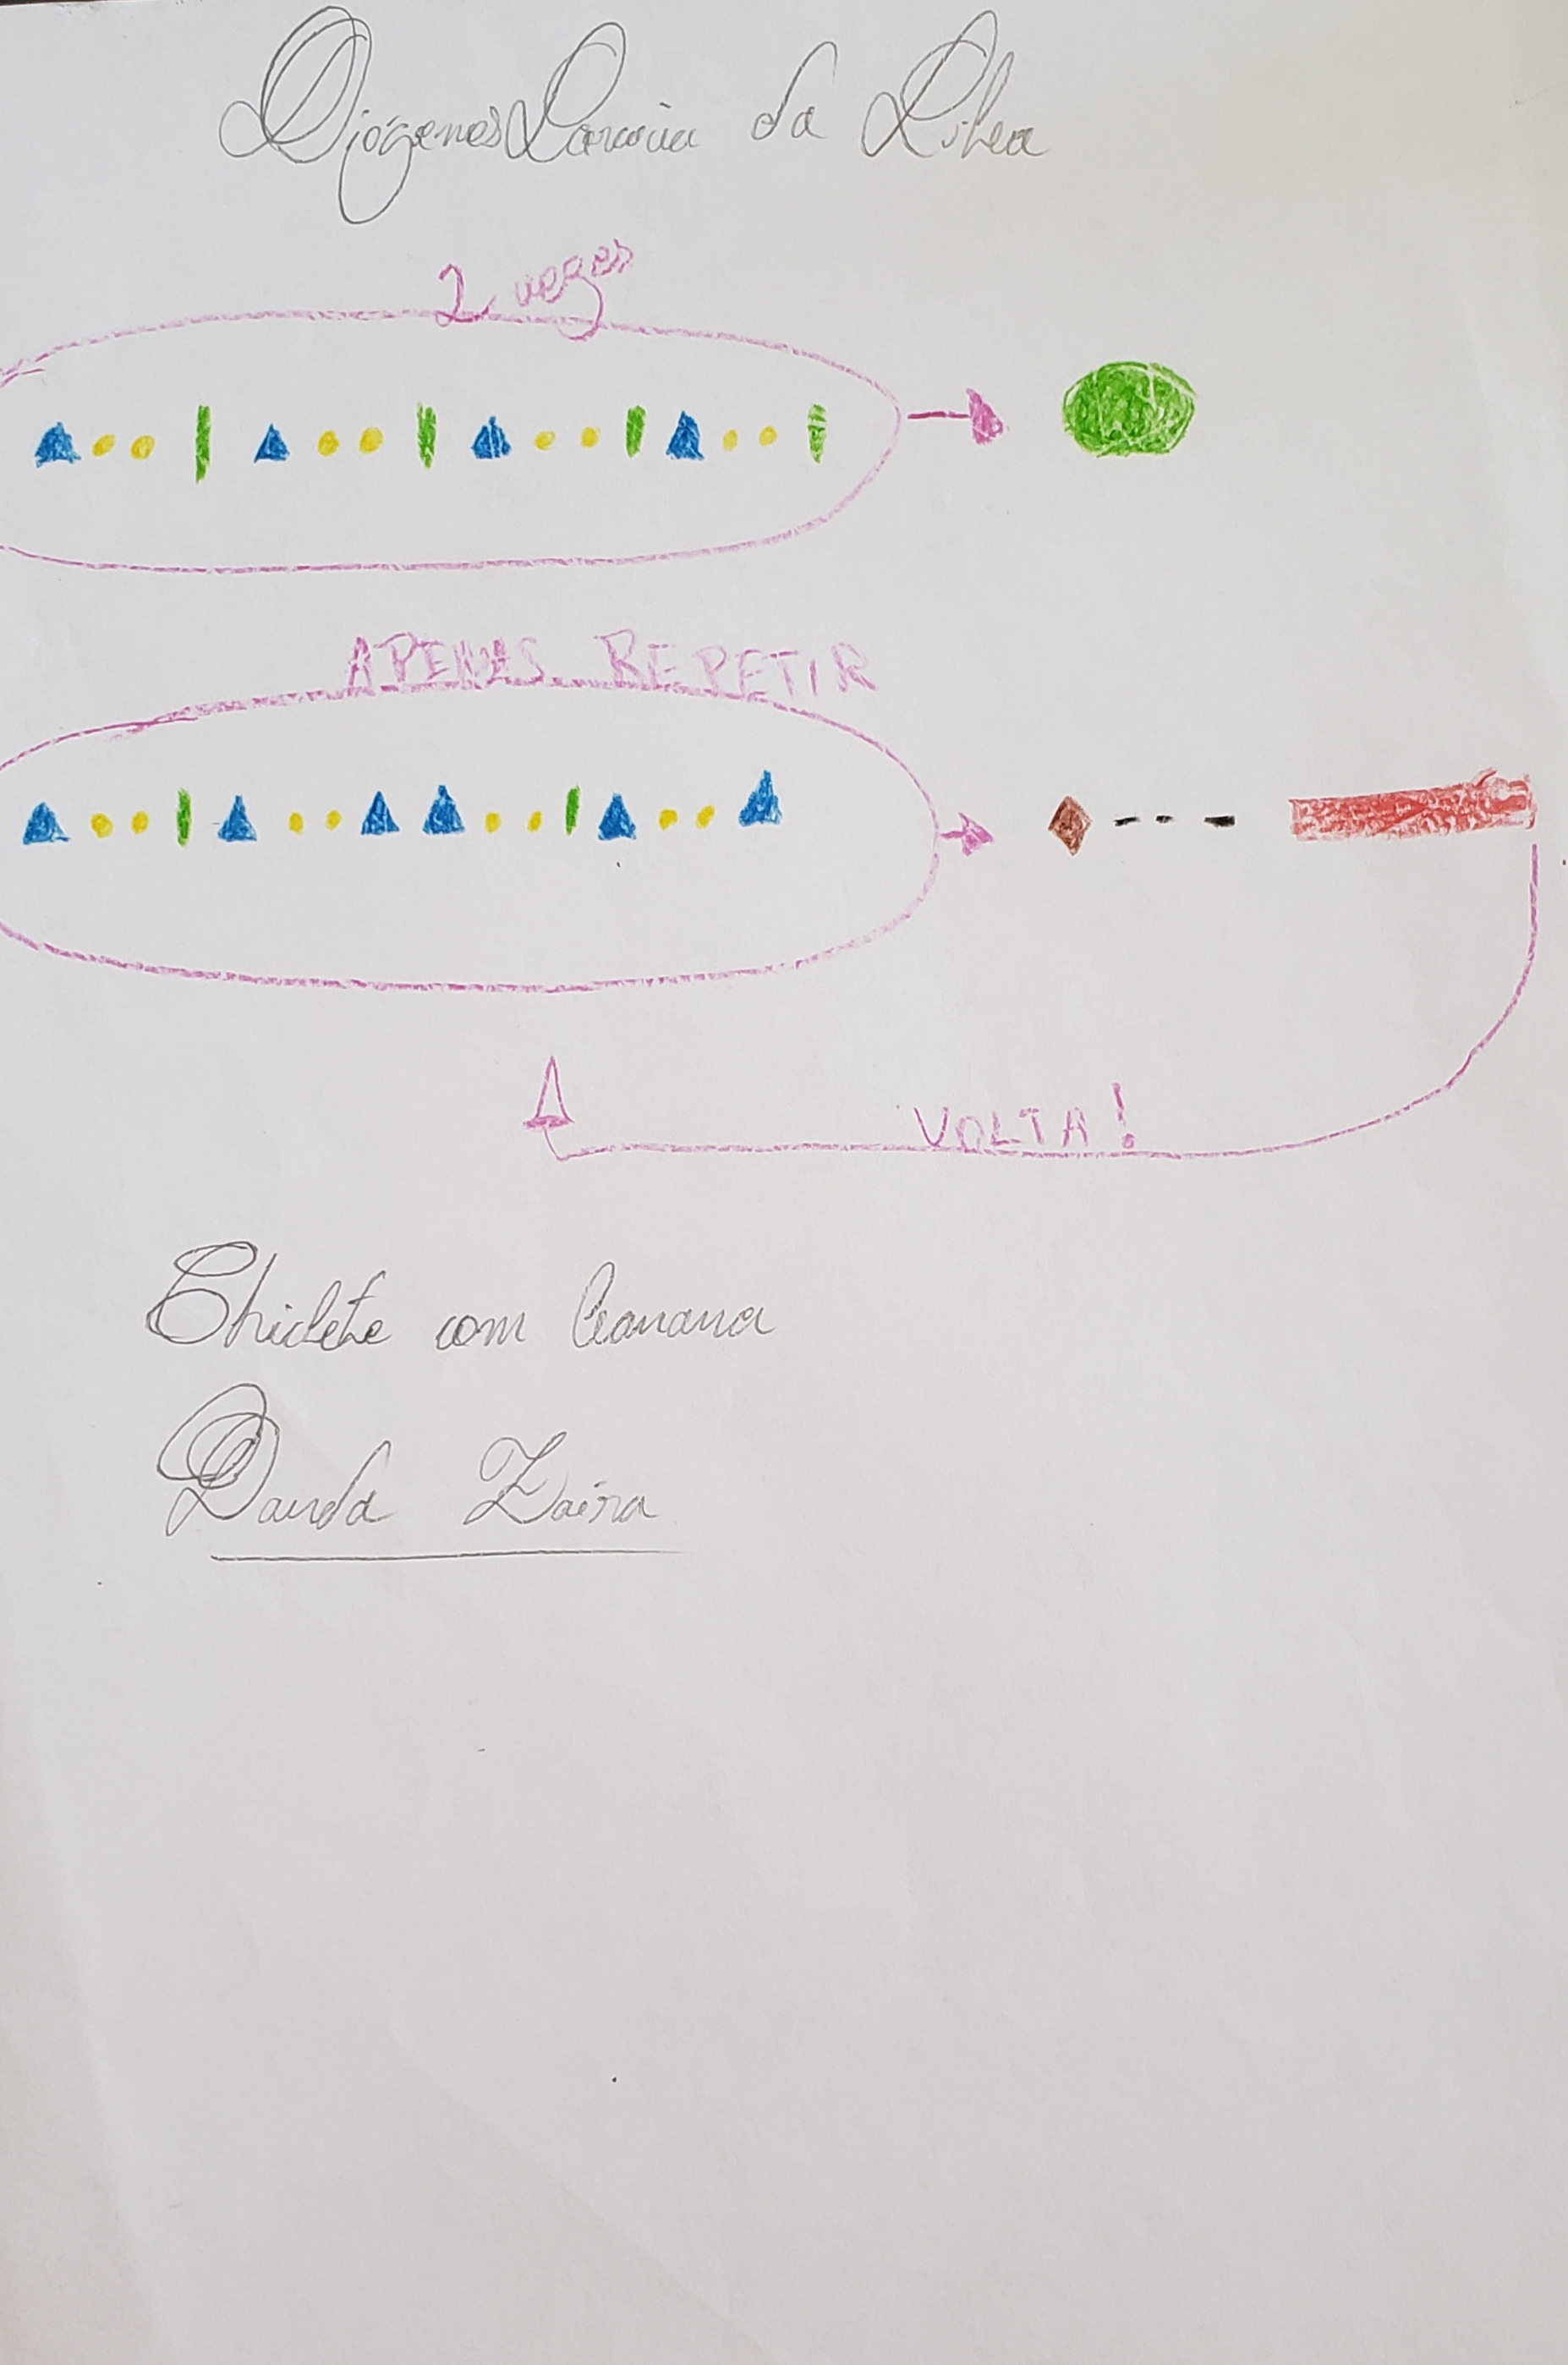 Diógenes da Silva
2 vezes
APENAS REPETIR
VOLTA!
Chiclete com Banana
Banda Zaíra